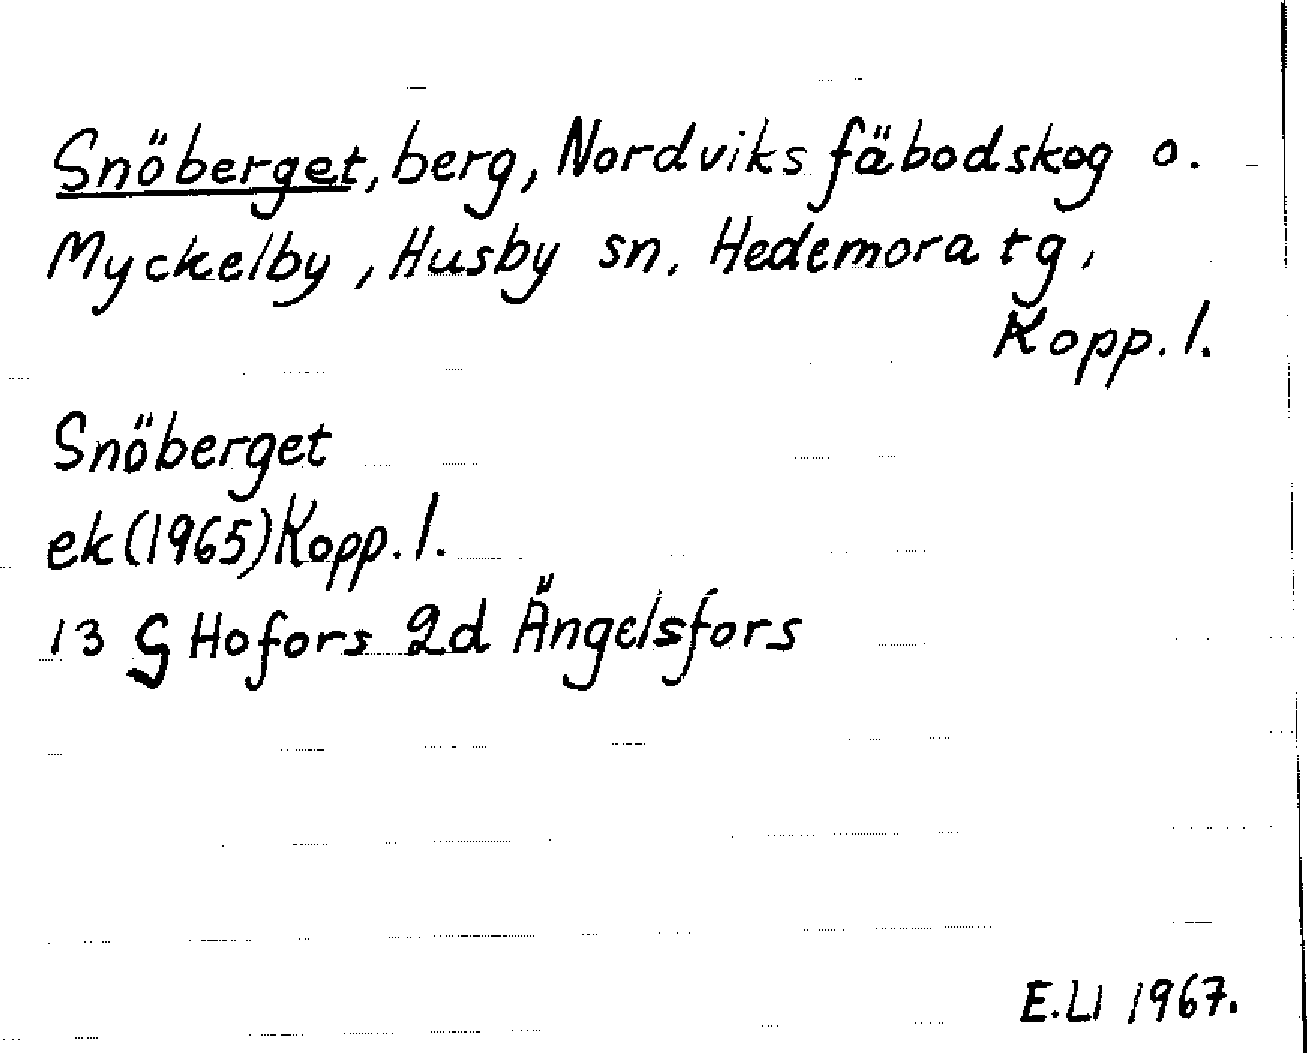 Snöberget, berg, Nordviks fäbodskog o.
Myckelby, Husby sn, Hedemora tg,
Kopp. l.
Snöberget
ek (1965) Kopp. l.
13 G Hofors 2d Ängelsfors
E.Ll 1967.